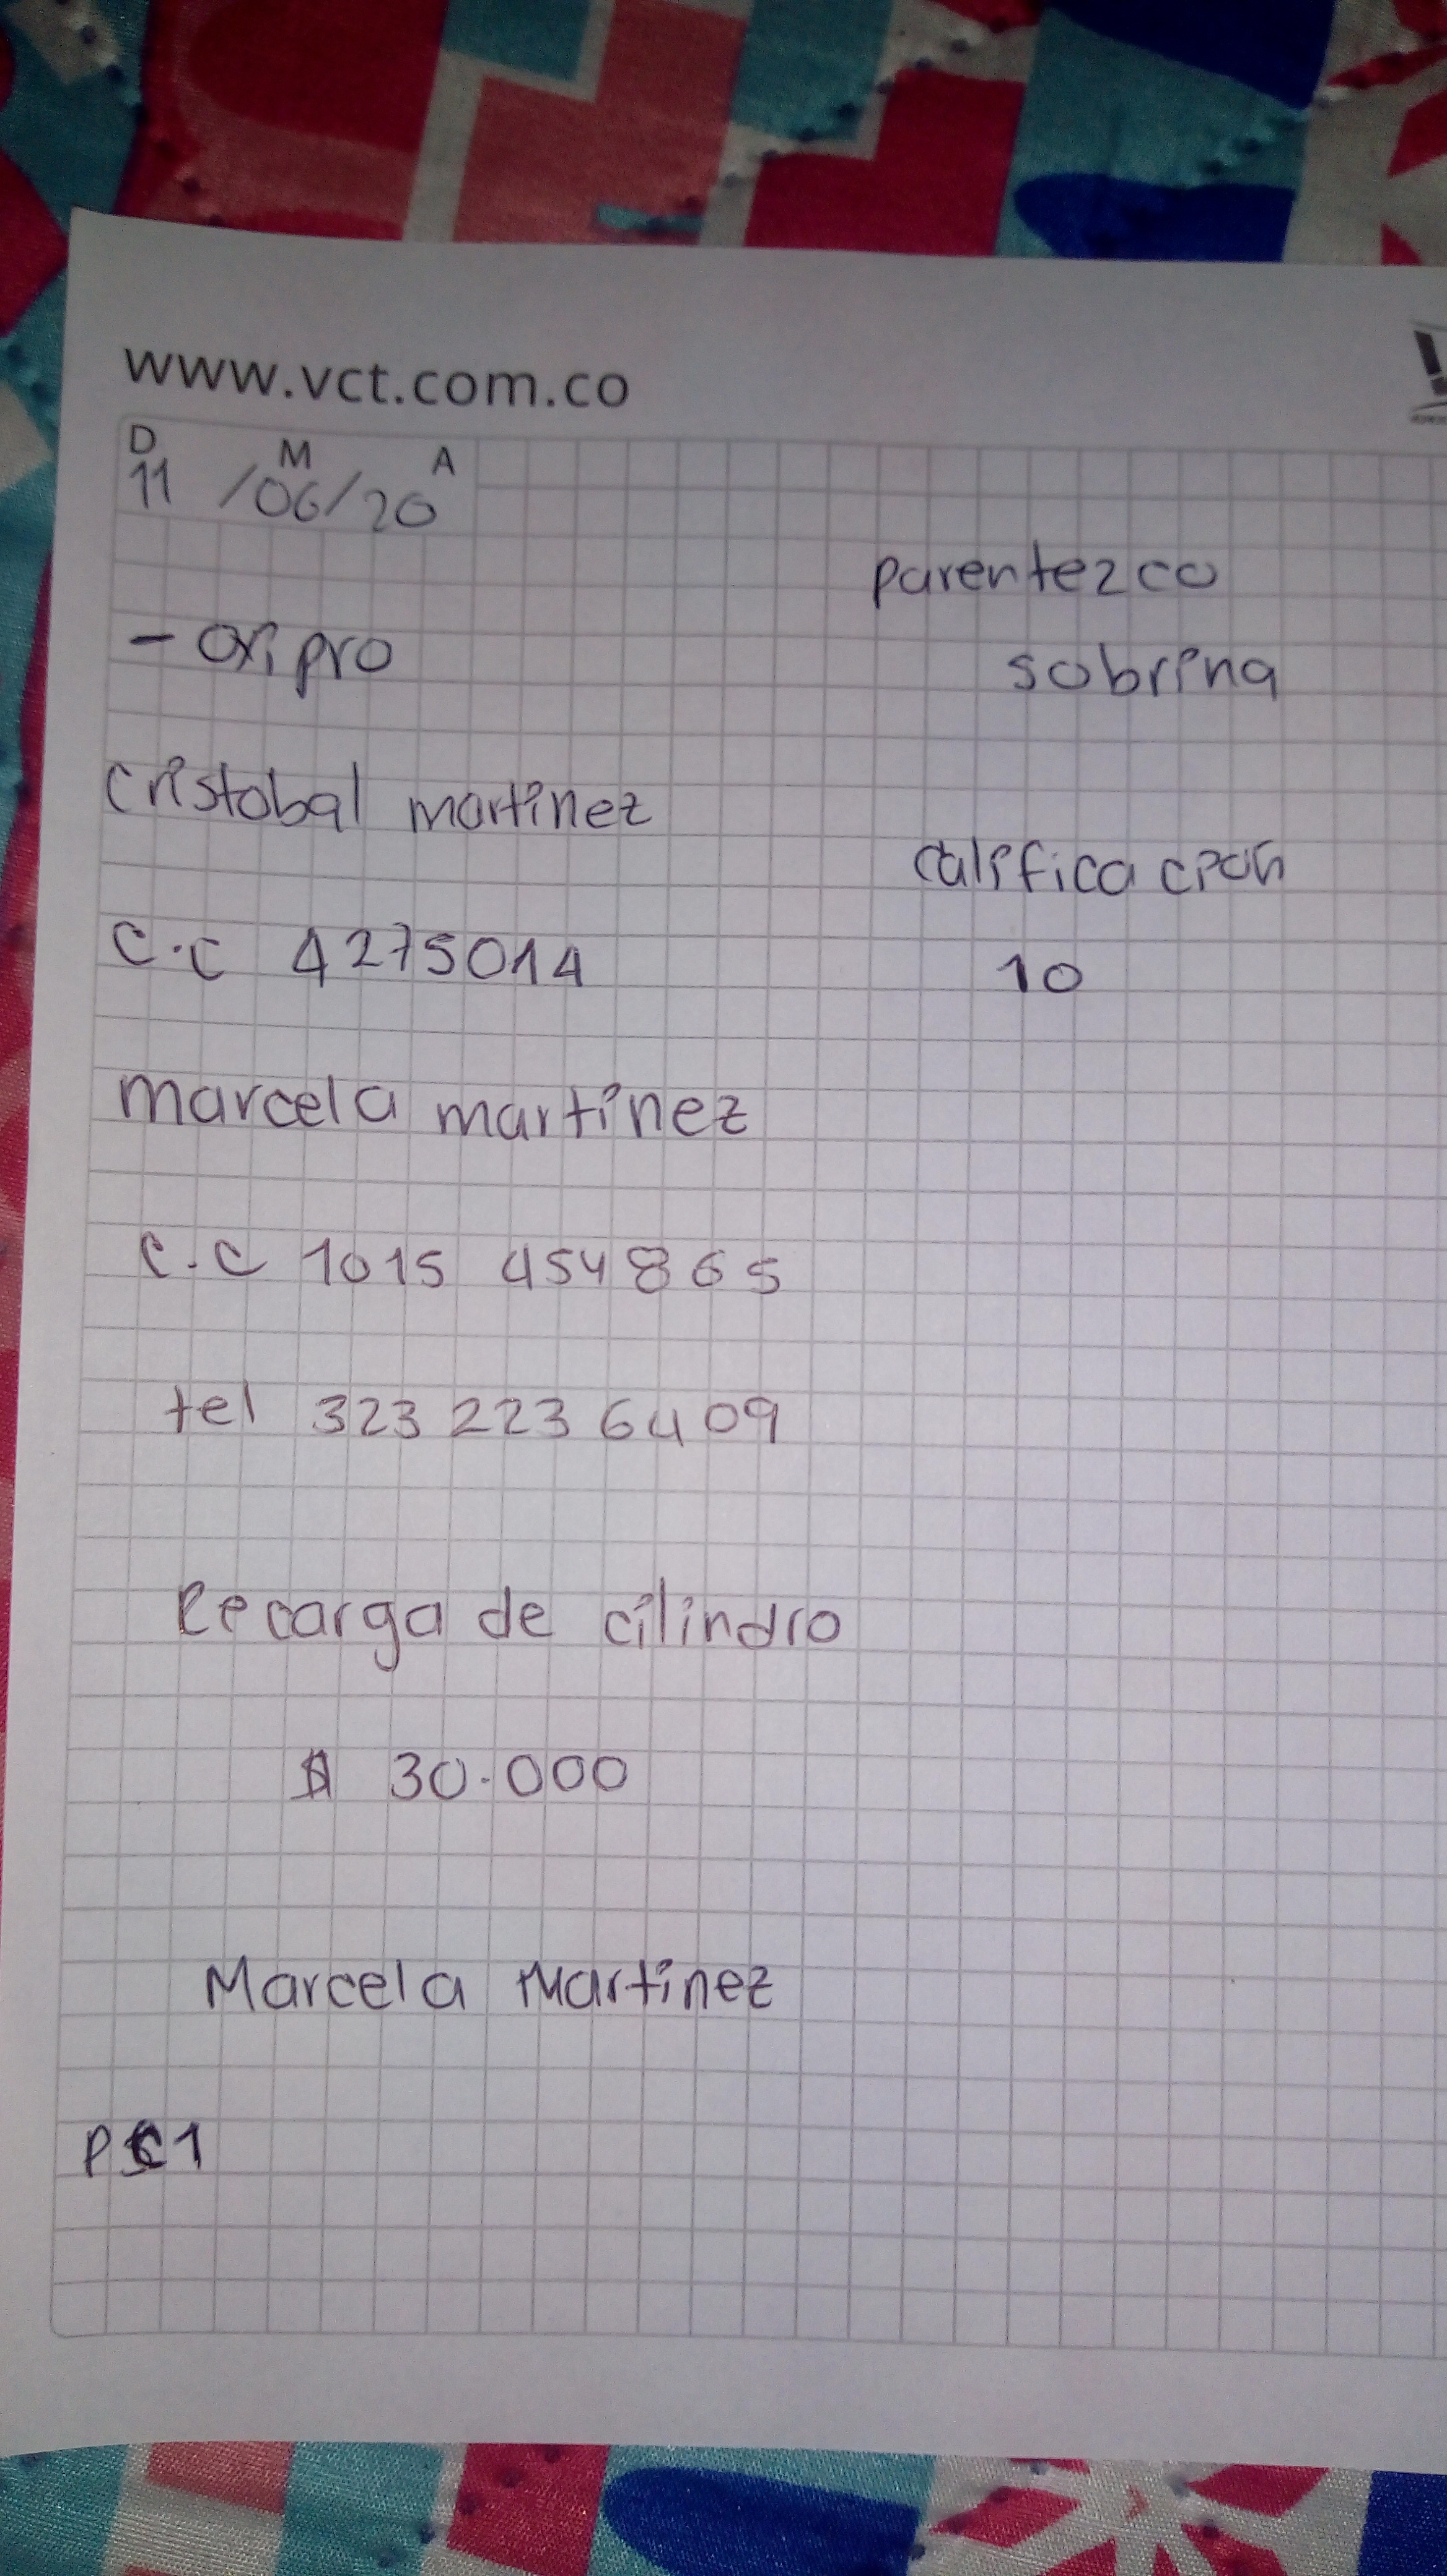 www.vct.com.co
D M A
11 /06/20
parentezco
- oxipro
sobrina
cristobal martinez
calificacion
c.c 4275014
10
marcela martinez
c.c 1015 454865
tel 323 223 6409
Recarga de cilindro
$ 30.000
Marcela Martinez